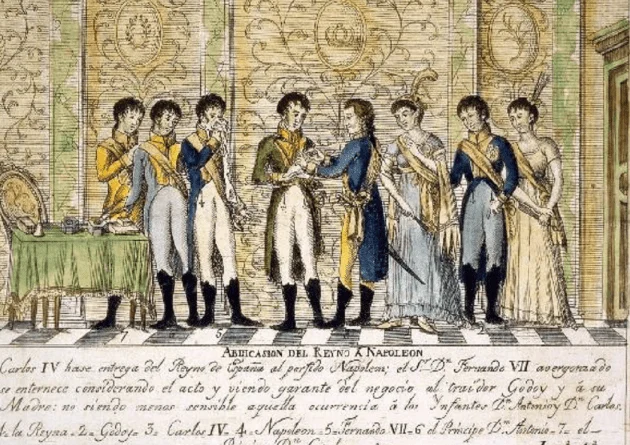 7
5
ABDICASION DEL REYNO A NAPOLEON
Carlos IV hase entrega del Reyno de España al perfido Napoleon; el S.r D.n Fernando VII avergonzado
se enternece considerando el acto y viendo garante del negocio al traidor Godoy y a su
Madre: no siendo menos sensible aquella ocurrencia à los Infantes D.n Antonio y D.n Carlos.
1. la Reyna - 2 - Godoy - 3 - Carlos IV - 4 - Napoleon - 5 - Fernando VII - 6 el Principe D.n Antonio - 7 - el